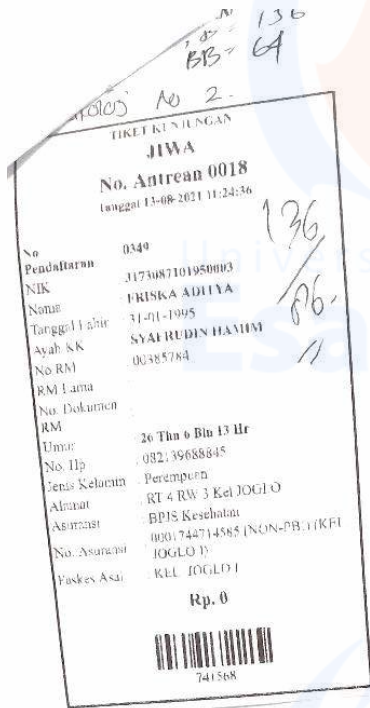 136
BB = 64
No 2.
TIKET KUNJUNGAN
JIWA
No. Antrean 0018
tanggal 13-08-2021 11:24:36
136/86
No Pendaftaran 0349
NIK
Nama FRISKA ADITYA
Tanggal Lahir 31-01-1995
Ayah KK SYAFRUDIN HAMIM
No RM 00385784
RM Lama
No. Dokumen RM
Umur 26 Thn 6 Bln 13 Hr
No. Hp 082139688845
Jenis Kelamin Perempuan
Alamat RT 4 RW 3 Kel JOGLO
Asuransi BPJS Kesehatan
No. Asuransi 0001744714585 (NON-PBI) (KEL JOGLO I)
Faskes Asal KEL JOGLO I
Rp. 0
741568
Univers
Esa